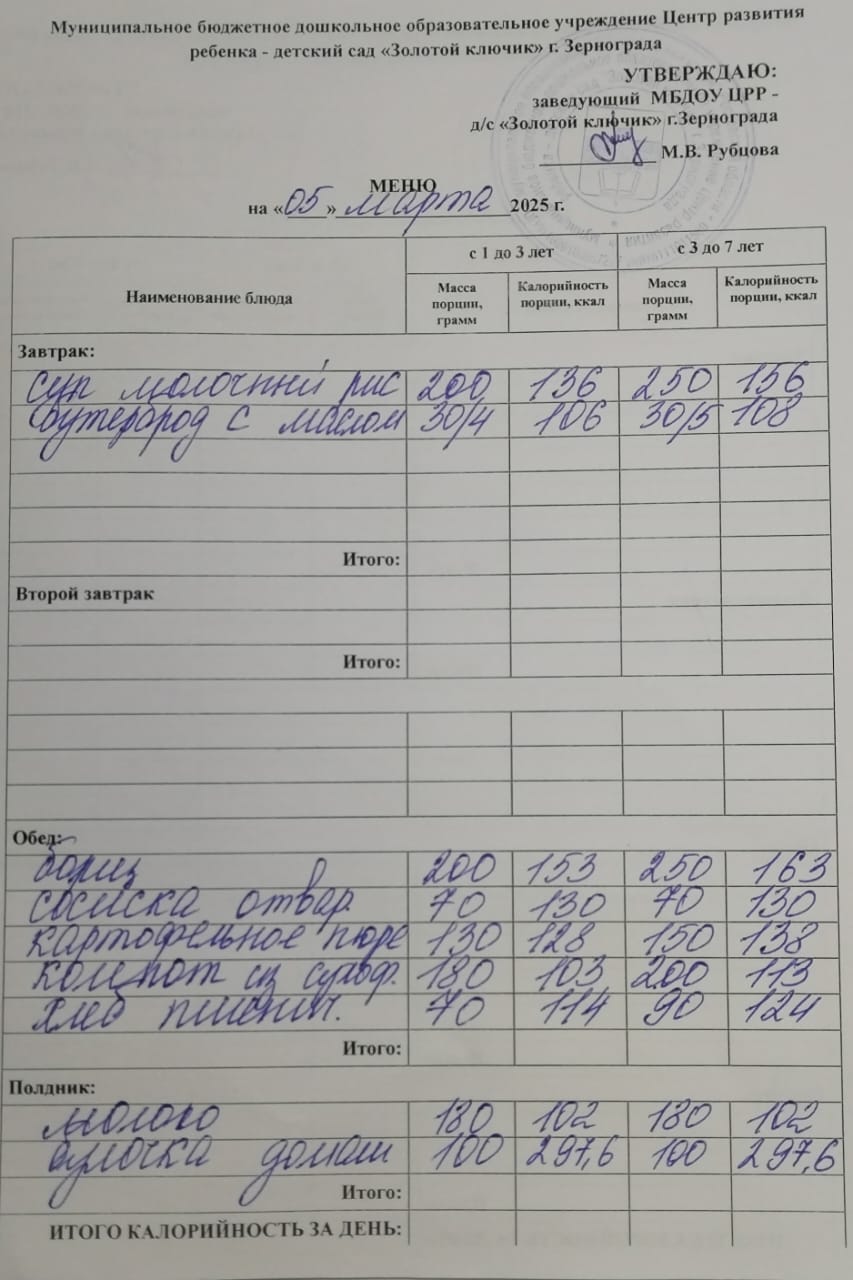 Муниципальное бюджетное дошкольное образовательное учреждение Центр развития
ребенка - детский сад «Золотой ключик» г. Зернограда
УТВЕРЖДАЮ:
заведующий МБДОУ ЦРР -
д/с «Золотой ключик» г.Зернограда
М.В. Рубцова
МЕНЮ
на «05» марта 2025 г.
Наименование блюда с 1 до 3 лет с 3 до 7 лет
Масса порции, грамм Калорийность порции, ккал Масса порции, грамм Калорийность порции, ккал
Завтрак:
суп молочный рис 200 136 250 156
бутерброд с маслом 30/4 106 30/5 108
Итого:
Второй завтрак
Итого:
Обед:
борщ 200 153 250 163
сосиска отвар. 70 130 70 130
картофельное пюре 130 128 150 138
компот из сухоф. 180 103 200 113
хлеб пшенич. 70 114 90 124
Итого:
Полдник:
молоко 180 102 180 102
булочка домаш 100 297,6 100 297,6
Итого:
ИТОГО КАЛОРИЙНОСТЬ ЗА ДЕНЬ: